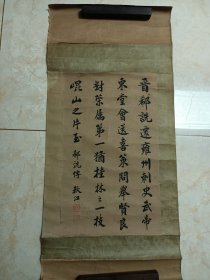 晉郤詵遷雍州刺史武帝
東堂會送喜策問舉賢良
對策為第一猶桂林之一枝
崐山之片玉 郤詵傳